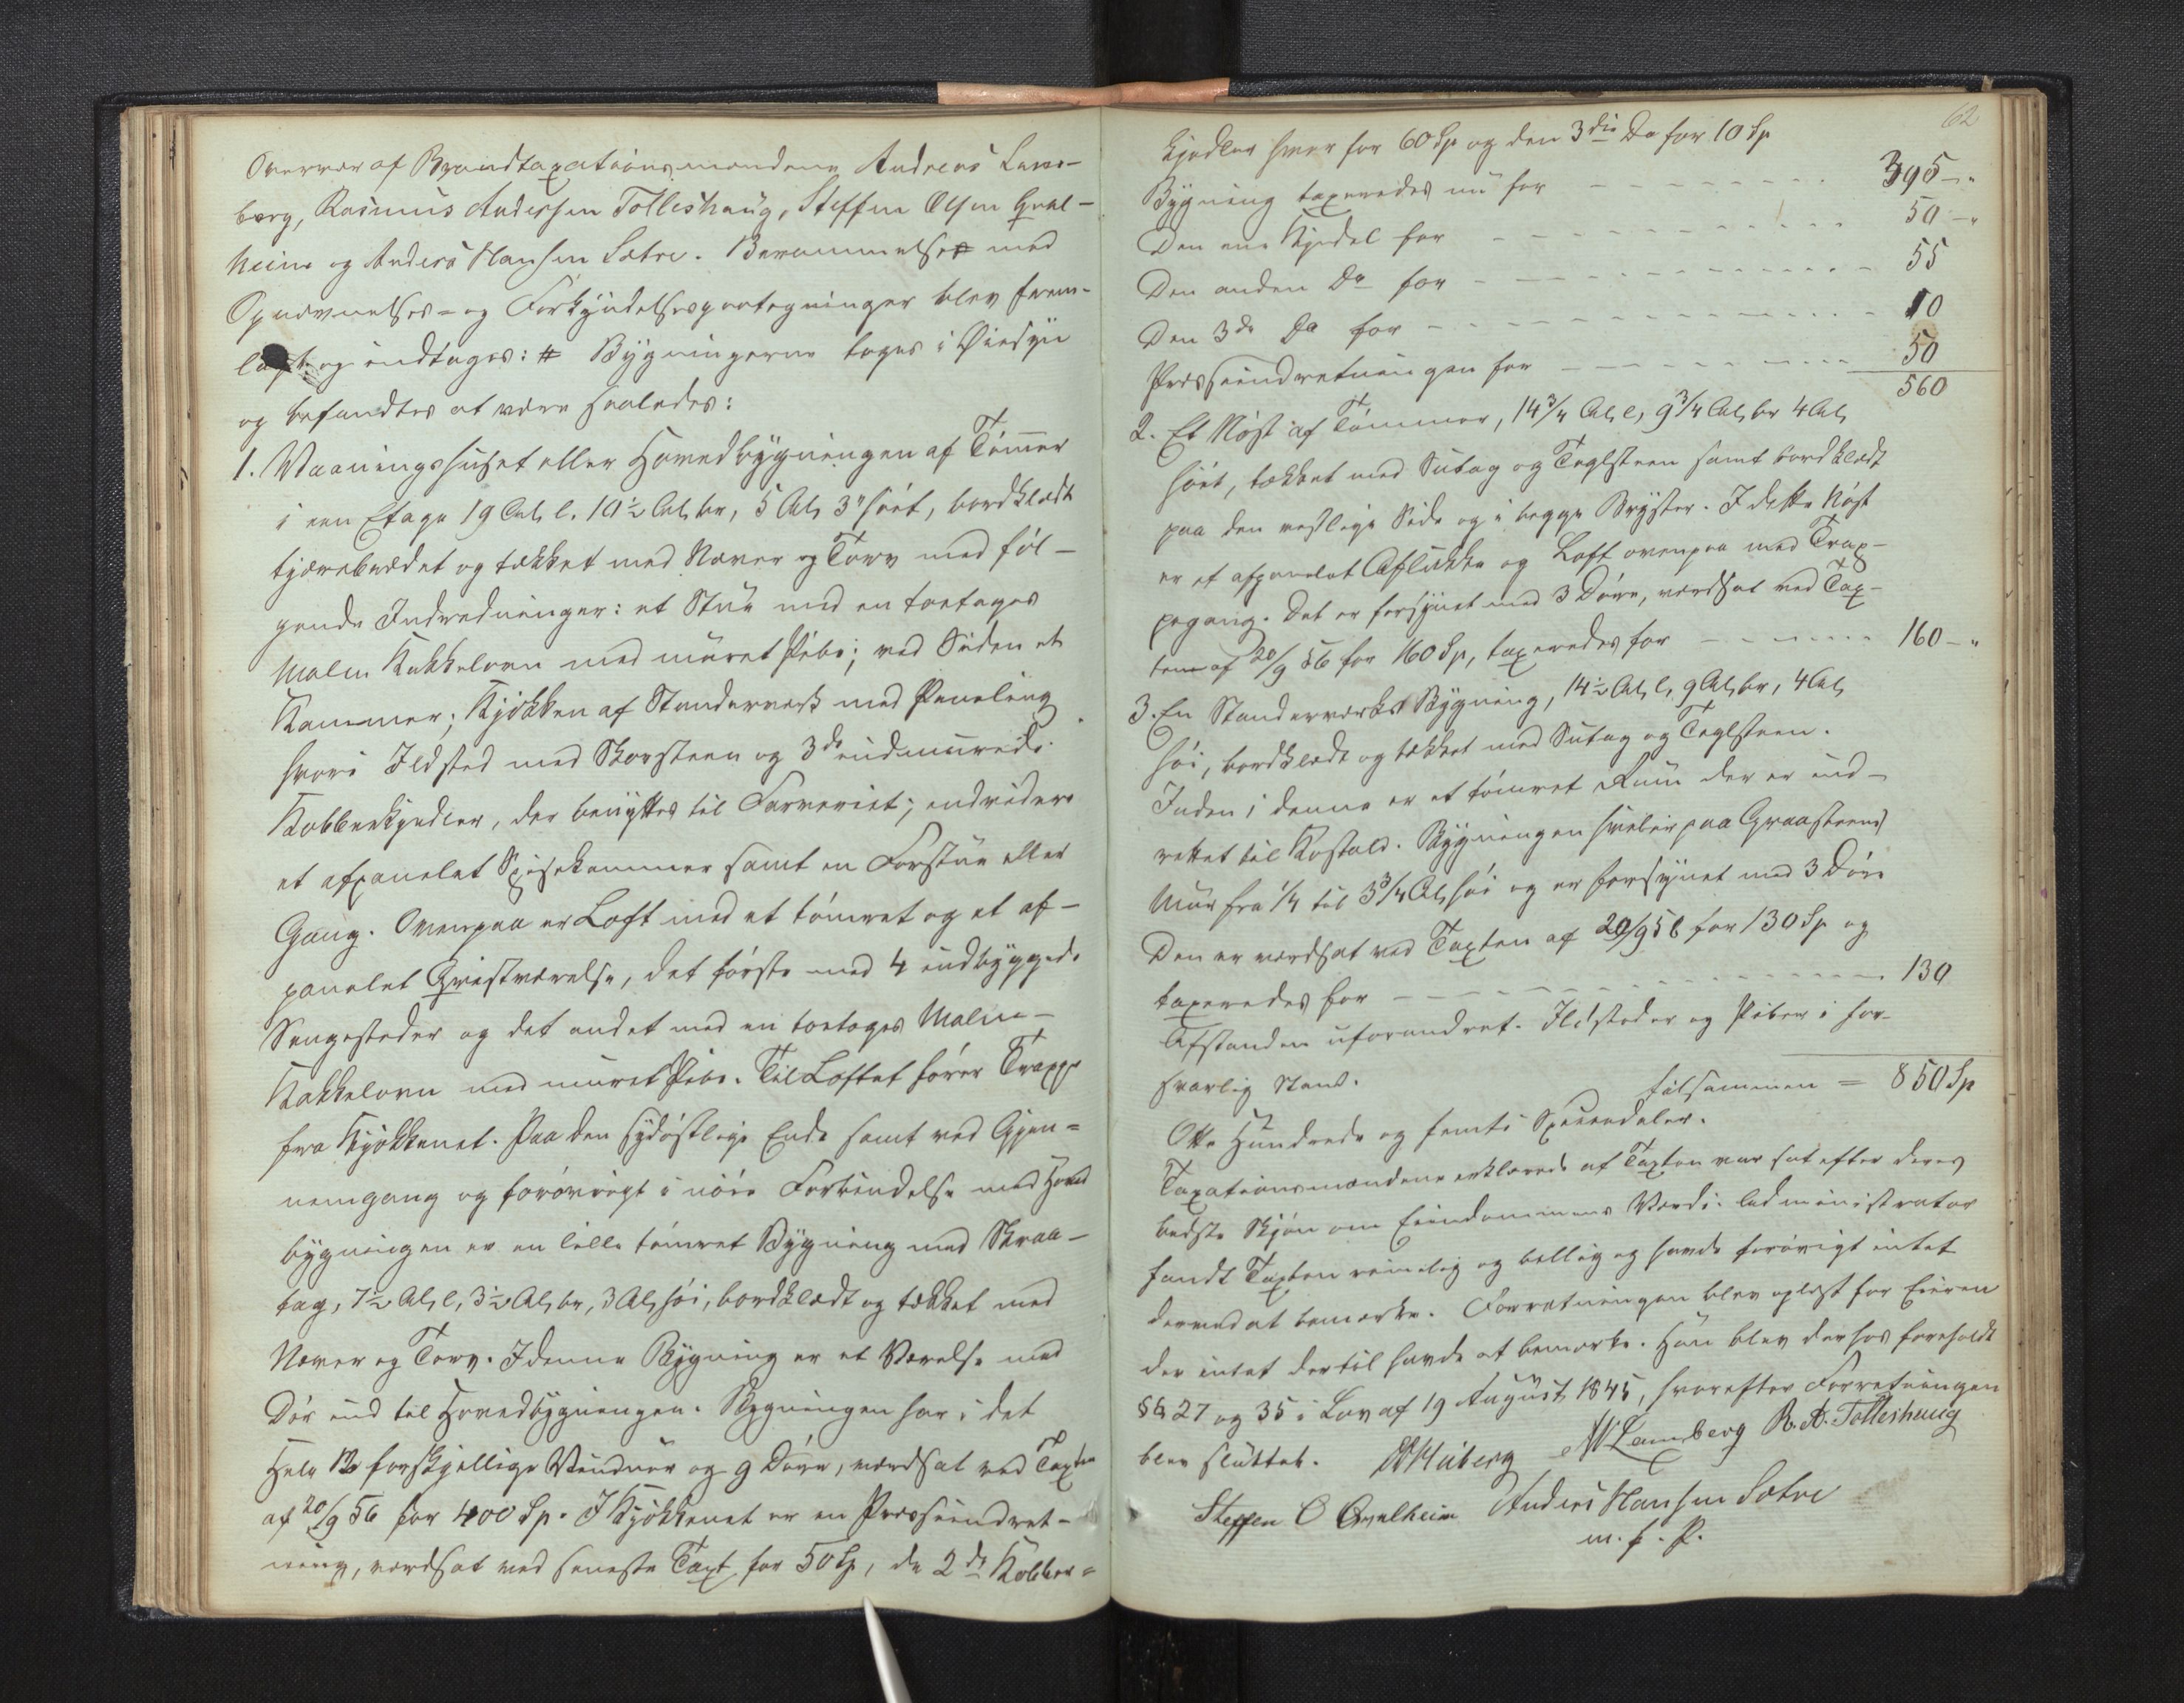 Overvær af Brandtaxationsmændene Andreas Lam-
berg, Rasmus Andersen Tolleshaug, Steffen Olsen Qval-
heim og Anders Hansen Sætre. Berammelse med
Opnævnelses- og Forkyndelsespaategninger blev frem-
lagt og indtages: # Bygningerne toges i Øiesyn
og befandtes at være saaledes:
1. Vaaningshuset eller Hovedbygningen af Tømmer
i een Etage 19 Al. l. 10½ Al. br, 5 Al. 3" høit, bordklædt
tjærebrædet og tækket med Næver og Torv med føl-
gende Indredninger: et Stue med en toetages
Malm Kakkelovn med muret Pibe; ved Siden et
Kammer; Kjøkken af Stenderværk med Paneling
hvori Ildsted med Skorsteen og 3de indmurede
Kobberkjedler, der benyttes til Farveriet; endvidere
et afpanelet Spisekammer samt en Forstue eller
Gang. Ovenpaa er Loft med et tømret og et af-
panelet Qvistværelse, det første med 4 indbyggede
Sengesteder og det andet med en toetages Malm-
Kakkelovn med muret Pibe. Til Loftet fører Trappe
fra Kjøkkenet. Paa den sydøstlige Ende samt ved Gjen-
nemgang og forøvrigt i nøie Forbindelse med Hoved
bygningen er en lille tømret Bygning med Skraa-
tag, 7½ Al. l, 3½ Al. br, 3 Al. høi, bordklædt og tækket med
Næver og Torv. I denne Bygning er et Værelse med
Dør ind til Hovedbygningen. Bygningen har i det
Hele 12 forskjellige Vinduer og 9 Døre, værdsat ved Taxten
af 20/9 56 for 400 Sp. I Kjøkkenet er en Presseindret-
ning, værdsat ved seneste Taxt for 50 Sp, de 2de Kobber-
62
kjedler hver for 60 Sp og den 3die Do for 10 Sp
Bygning taxeredes nu for 395 - "
Den ene Kjedel for 50 - "
Den anden Do for 55
Den 3de Do for 10
Presseindretningen for 50
560
2. Et Nøst af Tømmer, 14¾ Al. l, 9¾ Al. br 4 Al.
høit, tækket med Sutag og Teglsteen samt bordklædt
paa den vestlige Side og i begge Bryster. I dette Nøst
er et afpanelet Aflukke og Loft ovenpaa med Trap-
pegang. Det er forsynet med 3 Døre, værdsat ved Tax-
ten af 20/9 56 for 160 Sp, taxeredes for 160 - "
3. En Stenderværks Bygning, 14½ Al. l, 9 Al. br, 4 Al.
høi, bordklædt og tækket med Sutag og Teglsteen.
Inden i denne er et tømret Rum der er ind-
rettet til Kostald. Bygningen hviler paa Graasteens
Muur fra ¼ til 3¾ Al. høi og er forsynet med 3 Døre
Den er værdsat ved Taxten af 20/9 56 for 130 Sp og
taxeredes for 130
Afstanden uforandret. Ildsteder og Piber i for-
svarlig Stand.
tilsammen = 850 Sp
Otte Hundrede og femti Speciedaler.
Taxationsmændene erklærede at Taxten var sat efter deres
bedste Skjøn om Eiendommens Værdi. Administrator
fandt Taxten rimelig og billig og havde forøvrigt intet
derved at bemærke. Forretningen blev oplæst for Eieren
der intet dertil havde at bemærke. Han blev derhos foreholdt
§§ 27 og 35 i Lov af 19 August 1845, hvorefter Forretningen
blev sluttet. Wiberg AW Lamberg R. A. Tolleshaug
Steffen O Qvalheim Anders Hansen Sætre
m. f. P.